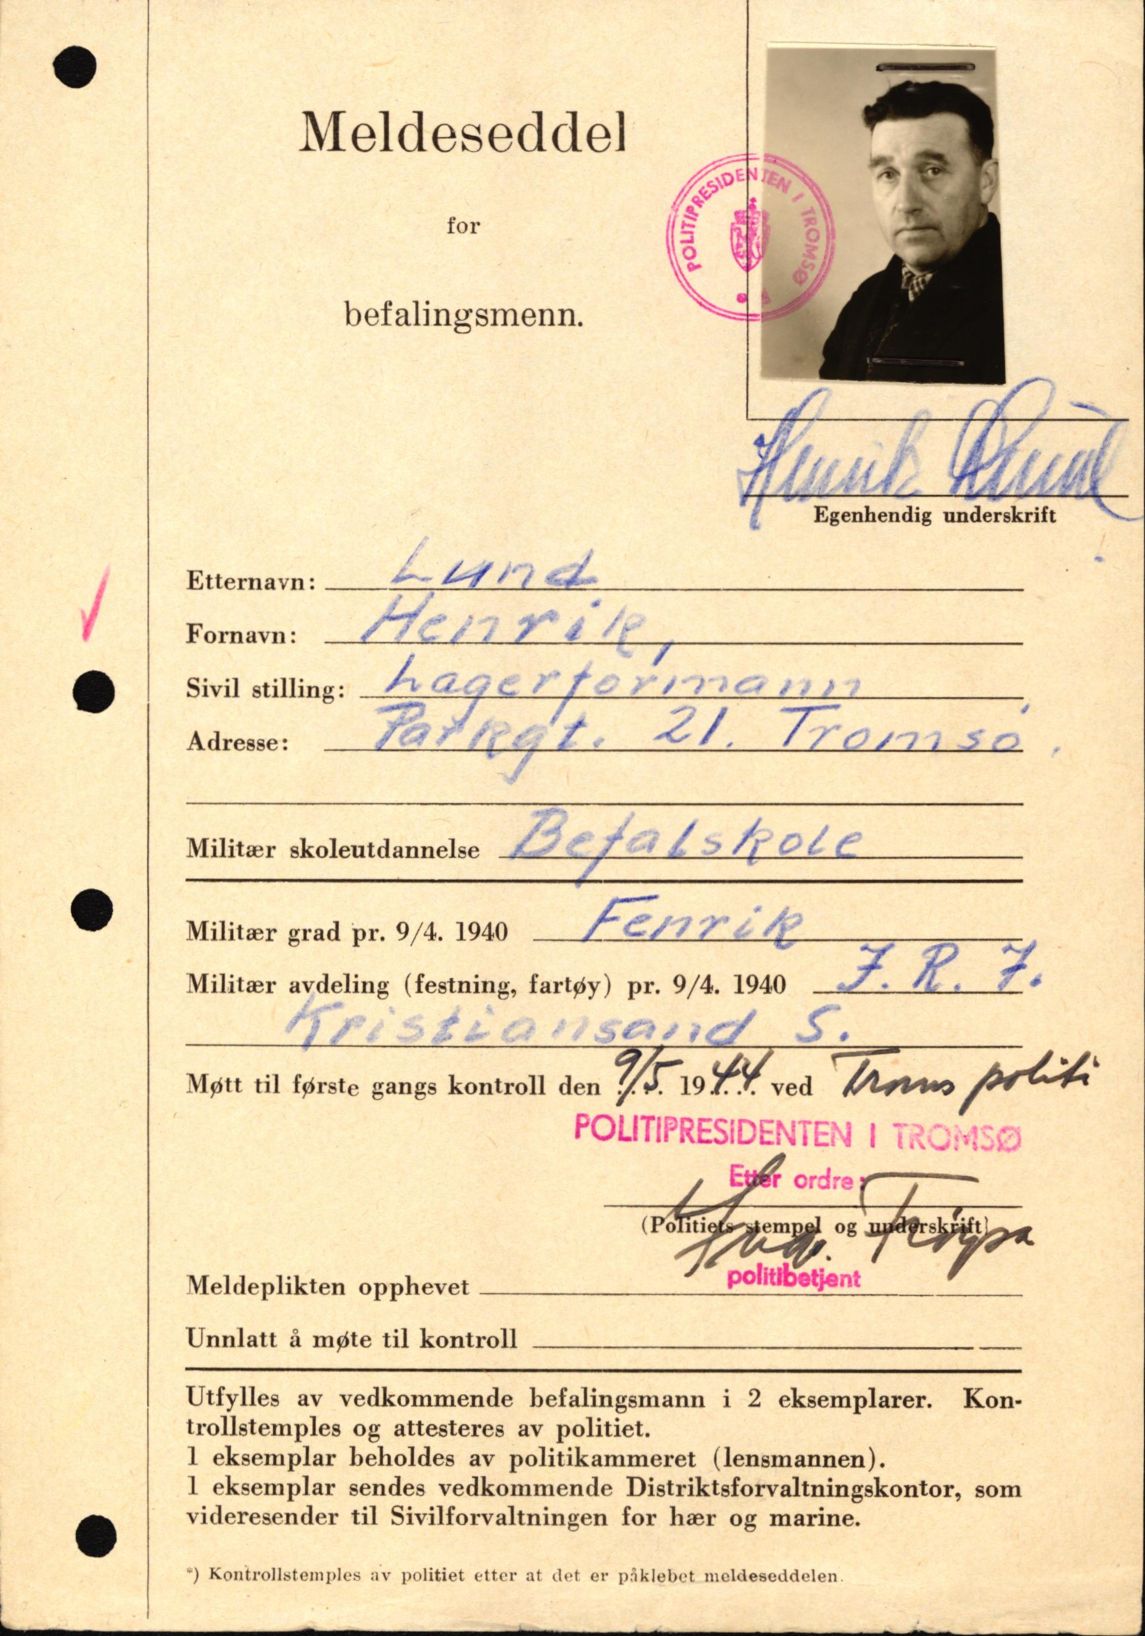 Meldeseddel
for
befalingsmenn.
POLITIPRESIDENTEN I TROMSØ
Henrik Lund
Egenhendig underskrift
Etternavn: Lund
Fornavn: Henrik,
Sivil stilling: Lagerformann
Adresse: Parkgt. 21. Tromsø.
Militær skoleutdannelse Befalskole
Militær grad pr. 9/4. 1940 Fenrik
Militær avdeling (festning, fartøy) pr. 9/4. 1940 I. R. 7.
Kristiansand S.
Møtt til første gangs kontroll den 9/5. 1944. ved Troms politi
POLITIPRESIDENTEN I TROMSØ
Etter ordre:
(Politiets stempel og underskrift)
politibetjent
Meldeplikten opphevet
Unnlatt å møte til kontroll
Utfylles av vedkommende befalingsmann i 2 eksemplarer. Kon-
trollstemples og attesteres av politiet.
1 eksemplar beholdes av politikammeret (lensmannen).
1 eksemplar sendes vedkommende Distriktsforvaltningskontor, som
videresender til Sivilforvaltningen for hær og marine.
*) Kontrollstemples av politiet etter at det er påklebet meldeseddelen.